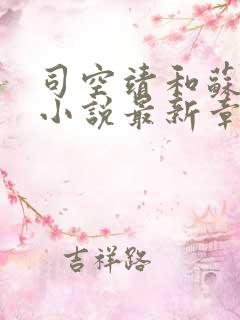 司空靖和蘇
小說最新章
吉祥路